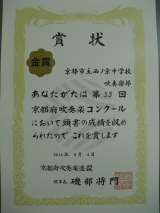 賞状
金賞
京都市立西ノ京中学校
吹奏楽部
あなたがたは第53回
京都府吹奏楽コンクール
において頭書の成績を収め
られたので これを賞します
京都府吹奏楽連盟
理事長 磯部将門